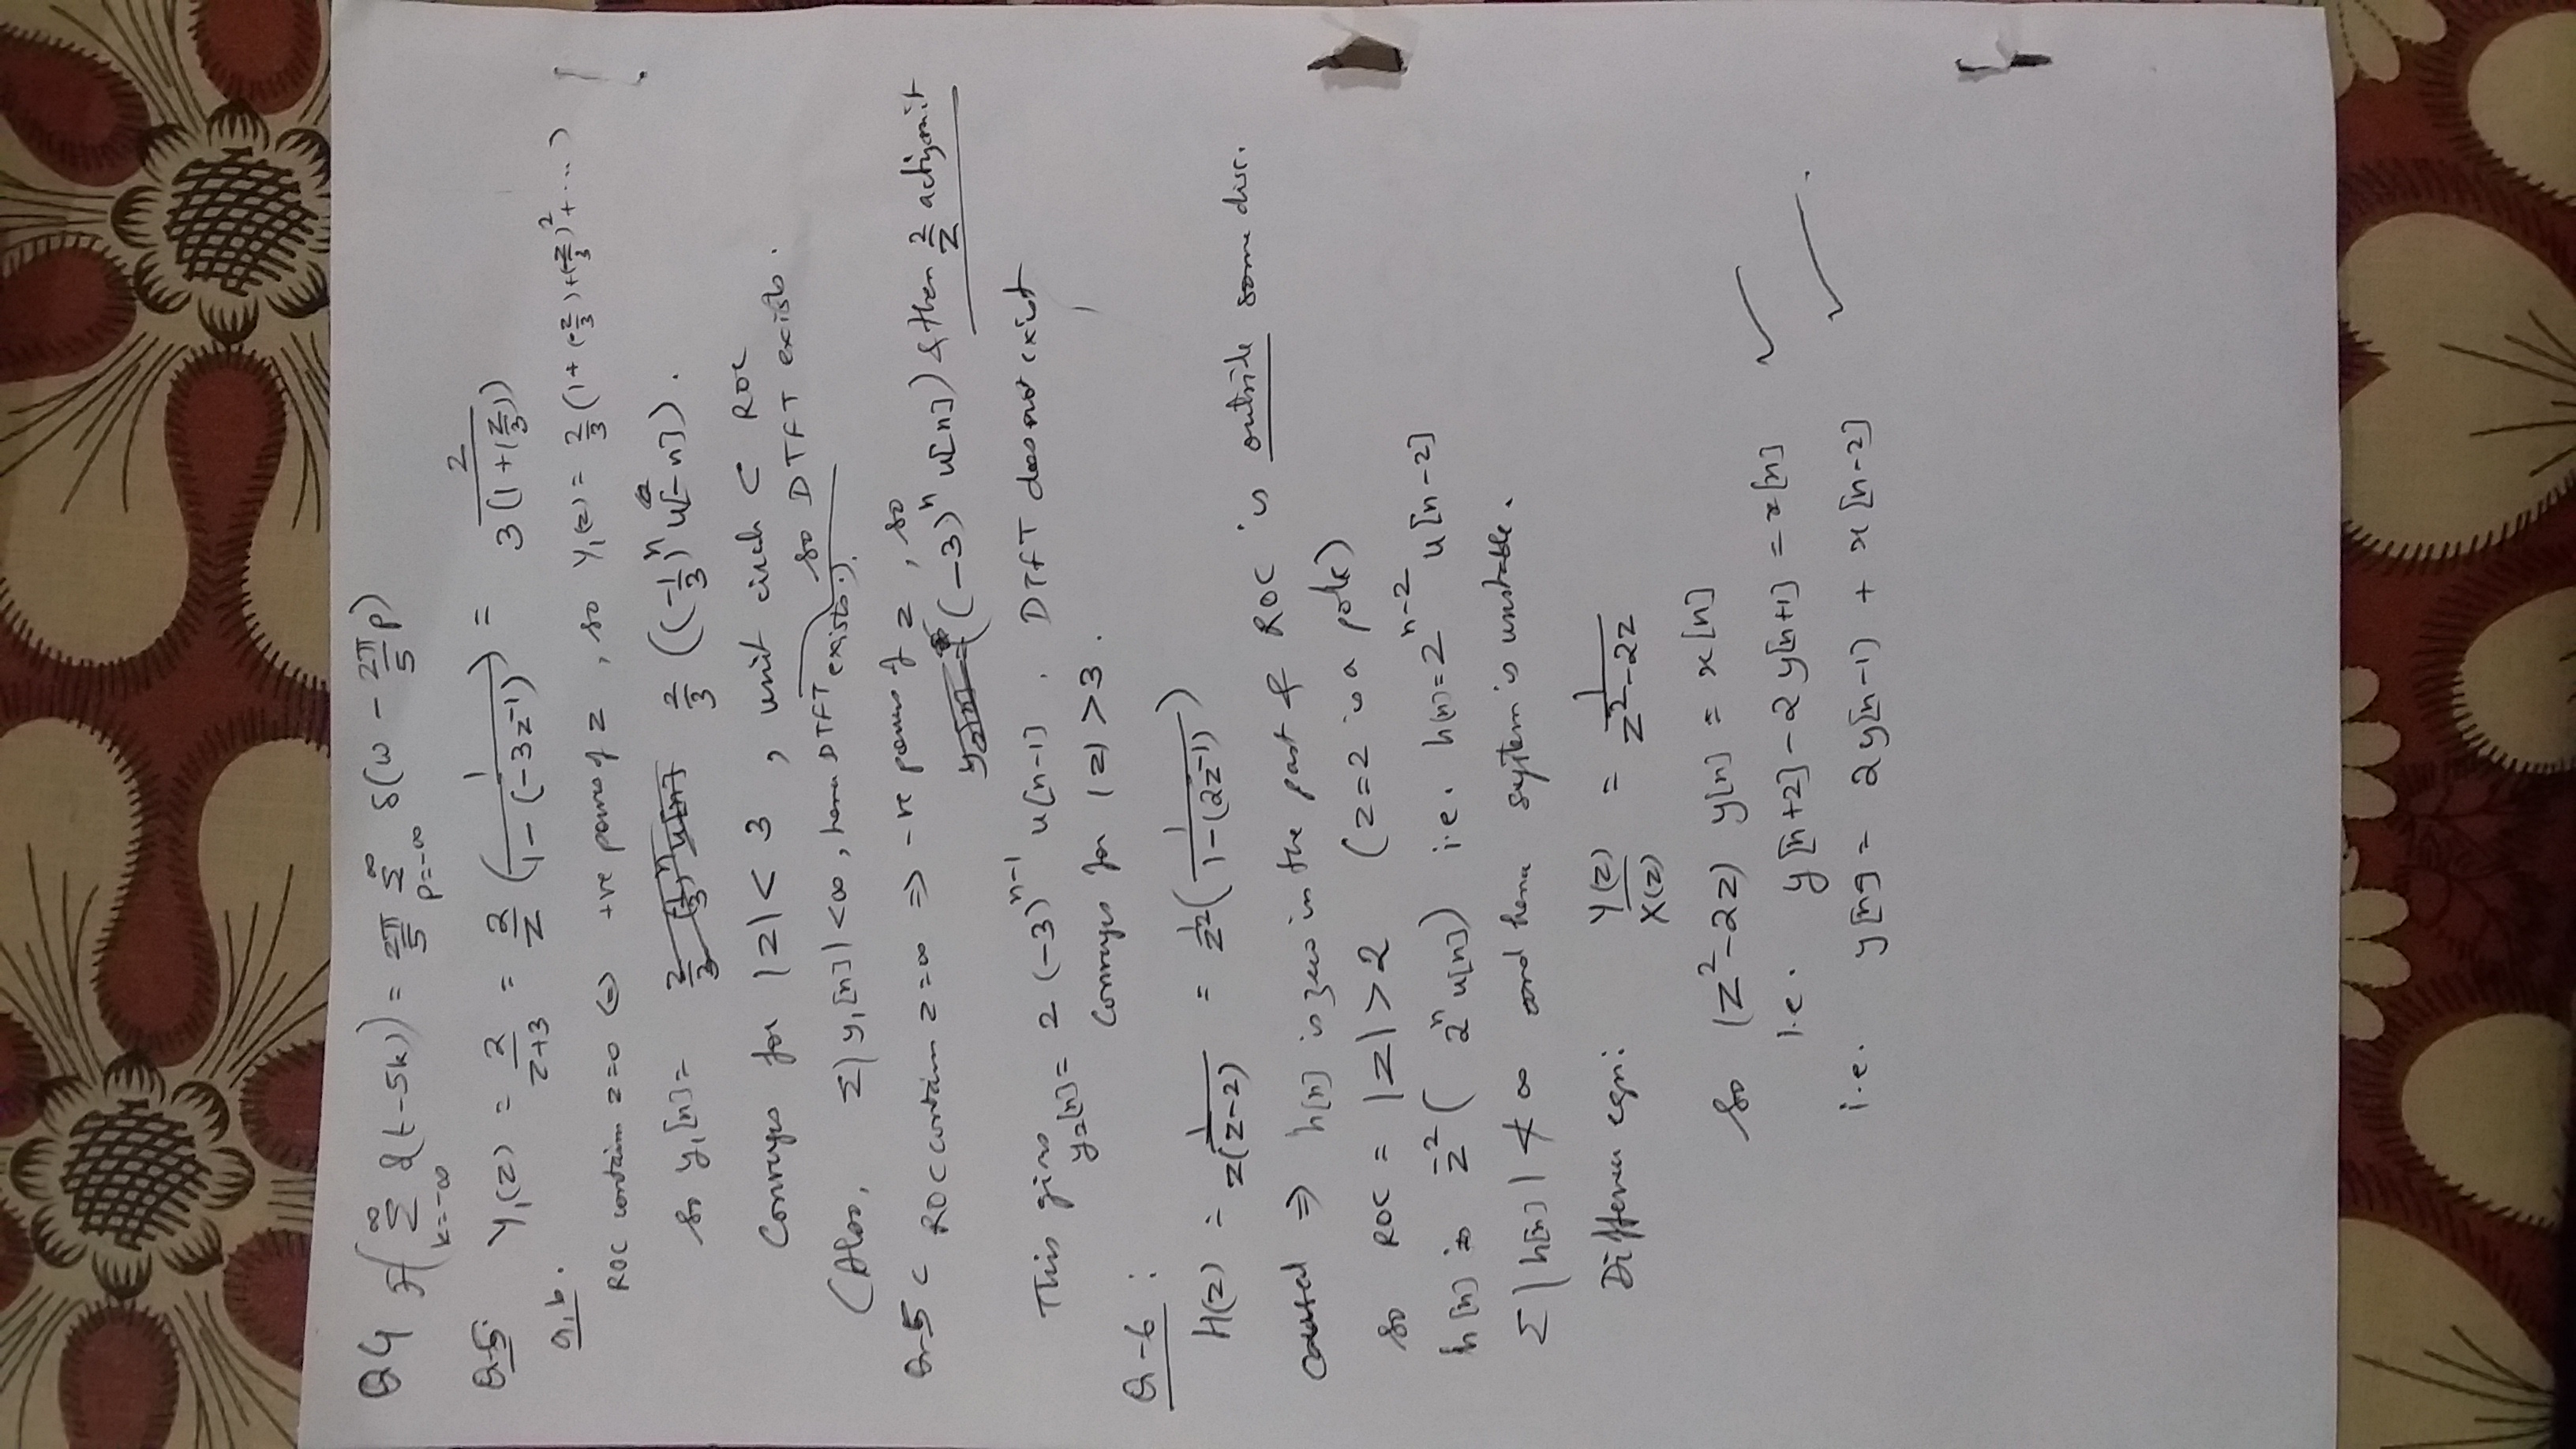 Q4 F(∑_{k=-∞}^{∞} δ(t-5k)) = 2π/5 ∑_{p=-∞}^{∞} δ(ω - 2π/5 p)
Q-5: Y₁(z) = 2/(z+3) = 2/z (1/(1-(-3z⁻¹))) = 2/(3(1+(z/3)))
a, b.
ROC contain z=0 ↔ +ve power of z, so Y₁(z) = 2/3 (1+(-z/3)+(-z/3)²+...)
so y₁[n] = 2/3 ((-1/3)ⁿ u[-n]).
Converges for |z| < 3, unit circle ⊂ ROC
so DTFT exists.
(Also, ∑|y₁[n]| < ∞, hence DTFT exists).
Q-5 c ROC contain z=∞ ⇒ -ve power of z, so
((-3)ⁿ u[n]) & then 2/z act upon it
This gives
y₂[n] = 2(-3)ⁿ⁻¹ u[n-1]. DTFT does not exist
Converges for |z| > 3.
Q-6:
H(z) = 1/(z(z-2)) = 1/z² (1/(1-(2z⁻¹)))
Causal ⇒ h[n] is zero in the past & ROC is outside some disc.
so ROC = |z| > 2 (z=2 is a pole)
h[n] is z⁻² (2ⁿ u[n]) i.e. h[n] = 2ⁿ⁻² u[n-2]
∑|h[n]| ≮ ∞ and hence system is unstable.
Difference eqn: Y(z)/X(z) = 1/(z²-2z)
so (z²-2z) y[n] = x[n]
i.e. y[n+2] - 2y[n+1] = x[n]
i.e. y[n] = 2y[n-1] + x[n-2]